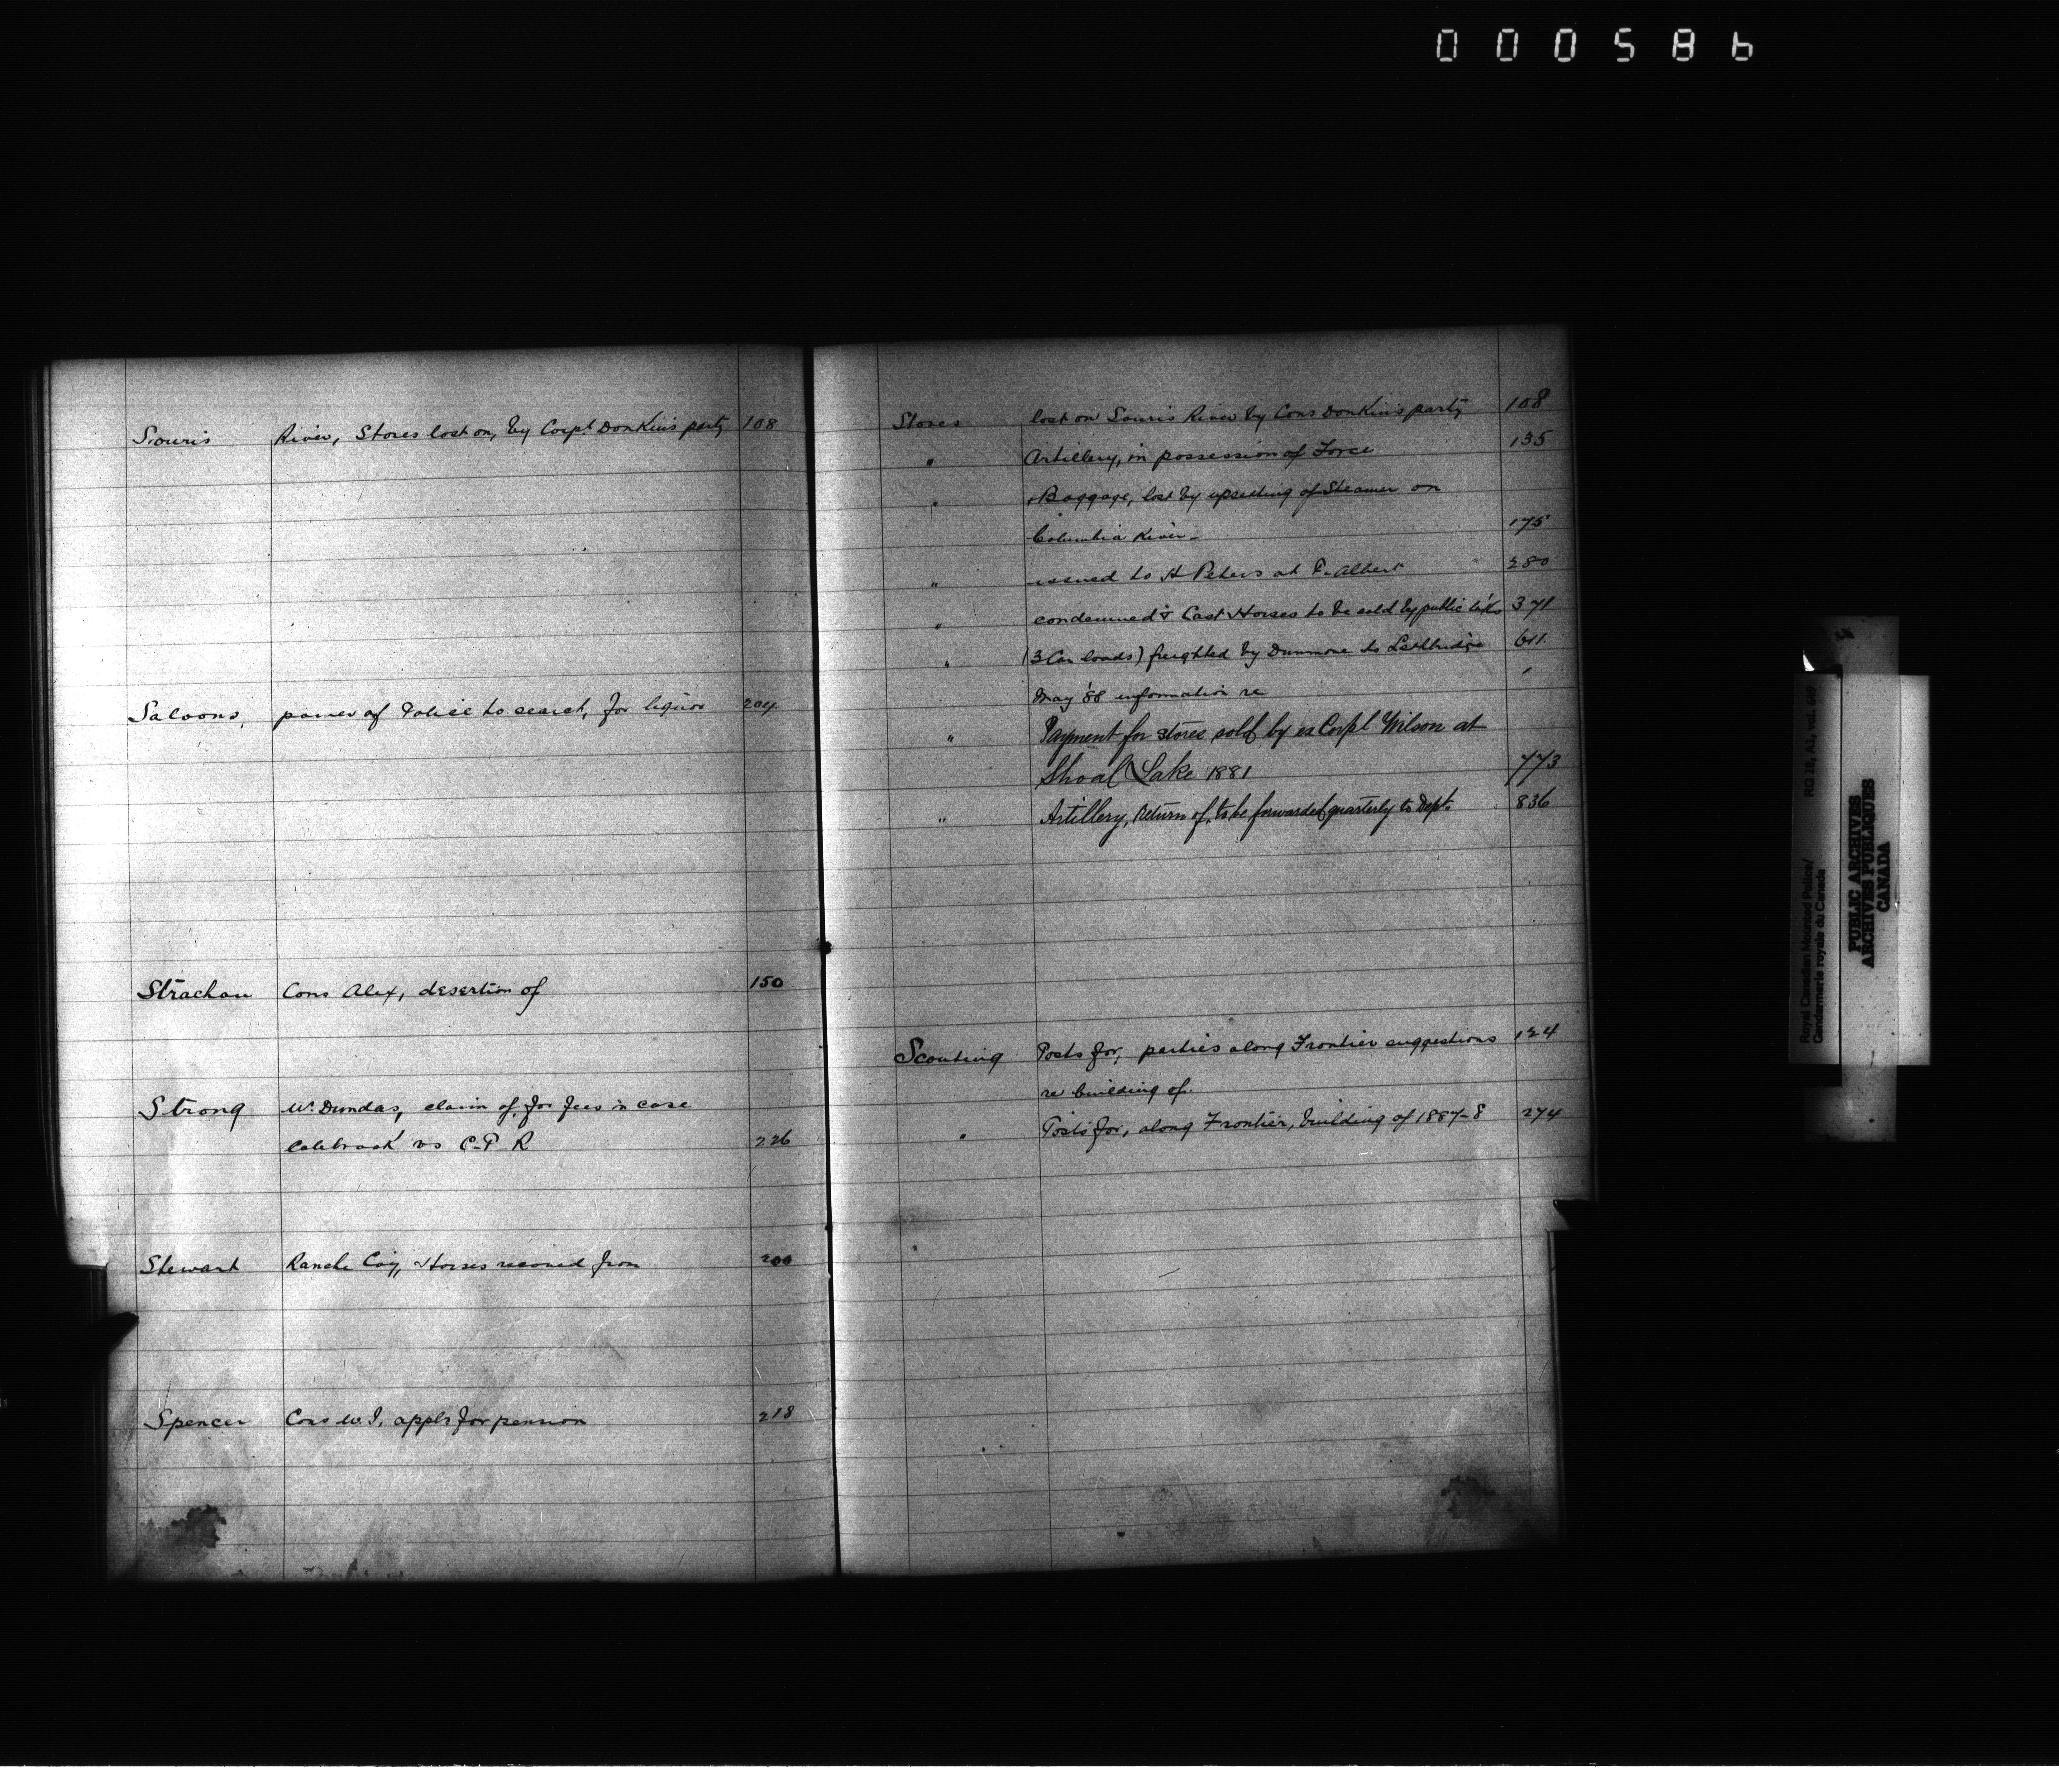 000586
Souris River, Stores lost on, by Corpl. Donkin's party 108
Saloons, power of Police to search, for liquor 204
Strachan Cons Alex, desertion of 150
Strong W. Dundas, claim of, for fees in case
Colebrook vs C.P.R 226
Stewart Ranche Coy, Horses received from 200
Spencer Cons W. J, appln for pension 218
Stores lost on Souris River by Cons Donkin's party 108
" Artillery, in possession of Force 135
" Baggage, lost by upsetting of Steamer on
Columbia River 175
" issued to H Peters at P. Albert 280
" condemned & Cast Horses to be sold by public 371
" (3 Car loads) freighted by Dunmore to Lethbridge 611
May '88 information re
" Payment for stores sold by ex Corpl Wilson at
Shoal Lake 1881 773
" Artillery, Return of, to be forwarded quarterly to Dept. 836
Scouting Posts for, parties along Frontier suggestions 124
re building of
" Posts for, along Frontier, building of 1887-8 274
Royal Canadian Mounted Police/
Gendarmerie royale du Canada
RG 18, A1, vol.
PUBLIC ARCHIVES
ARCHIVES PUBLIQUES
CANADA